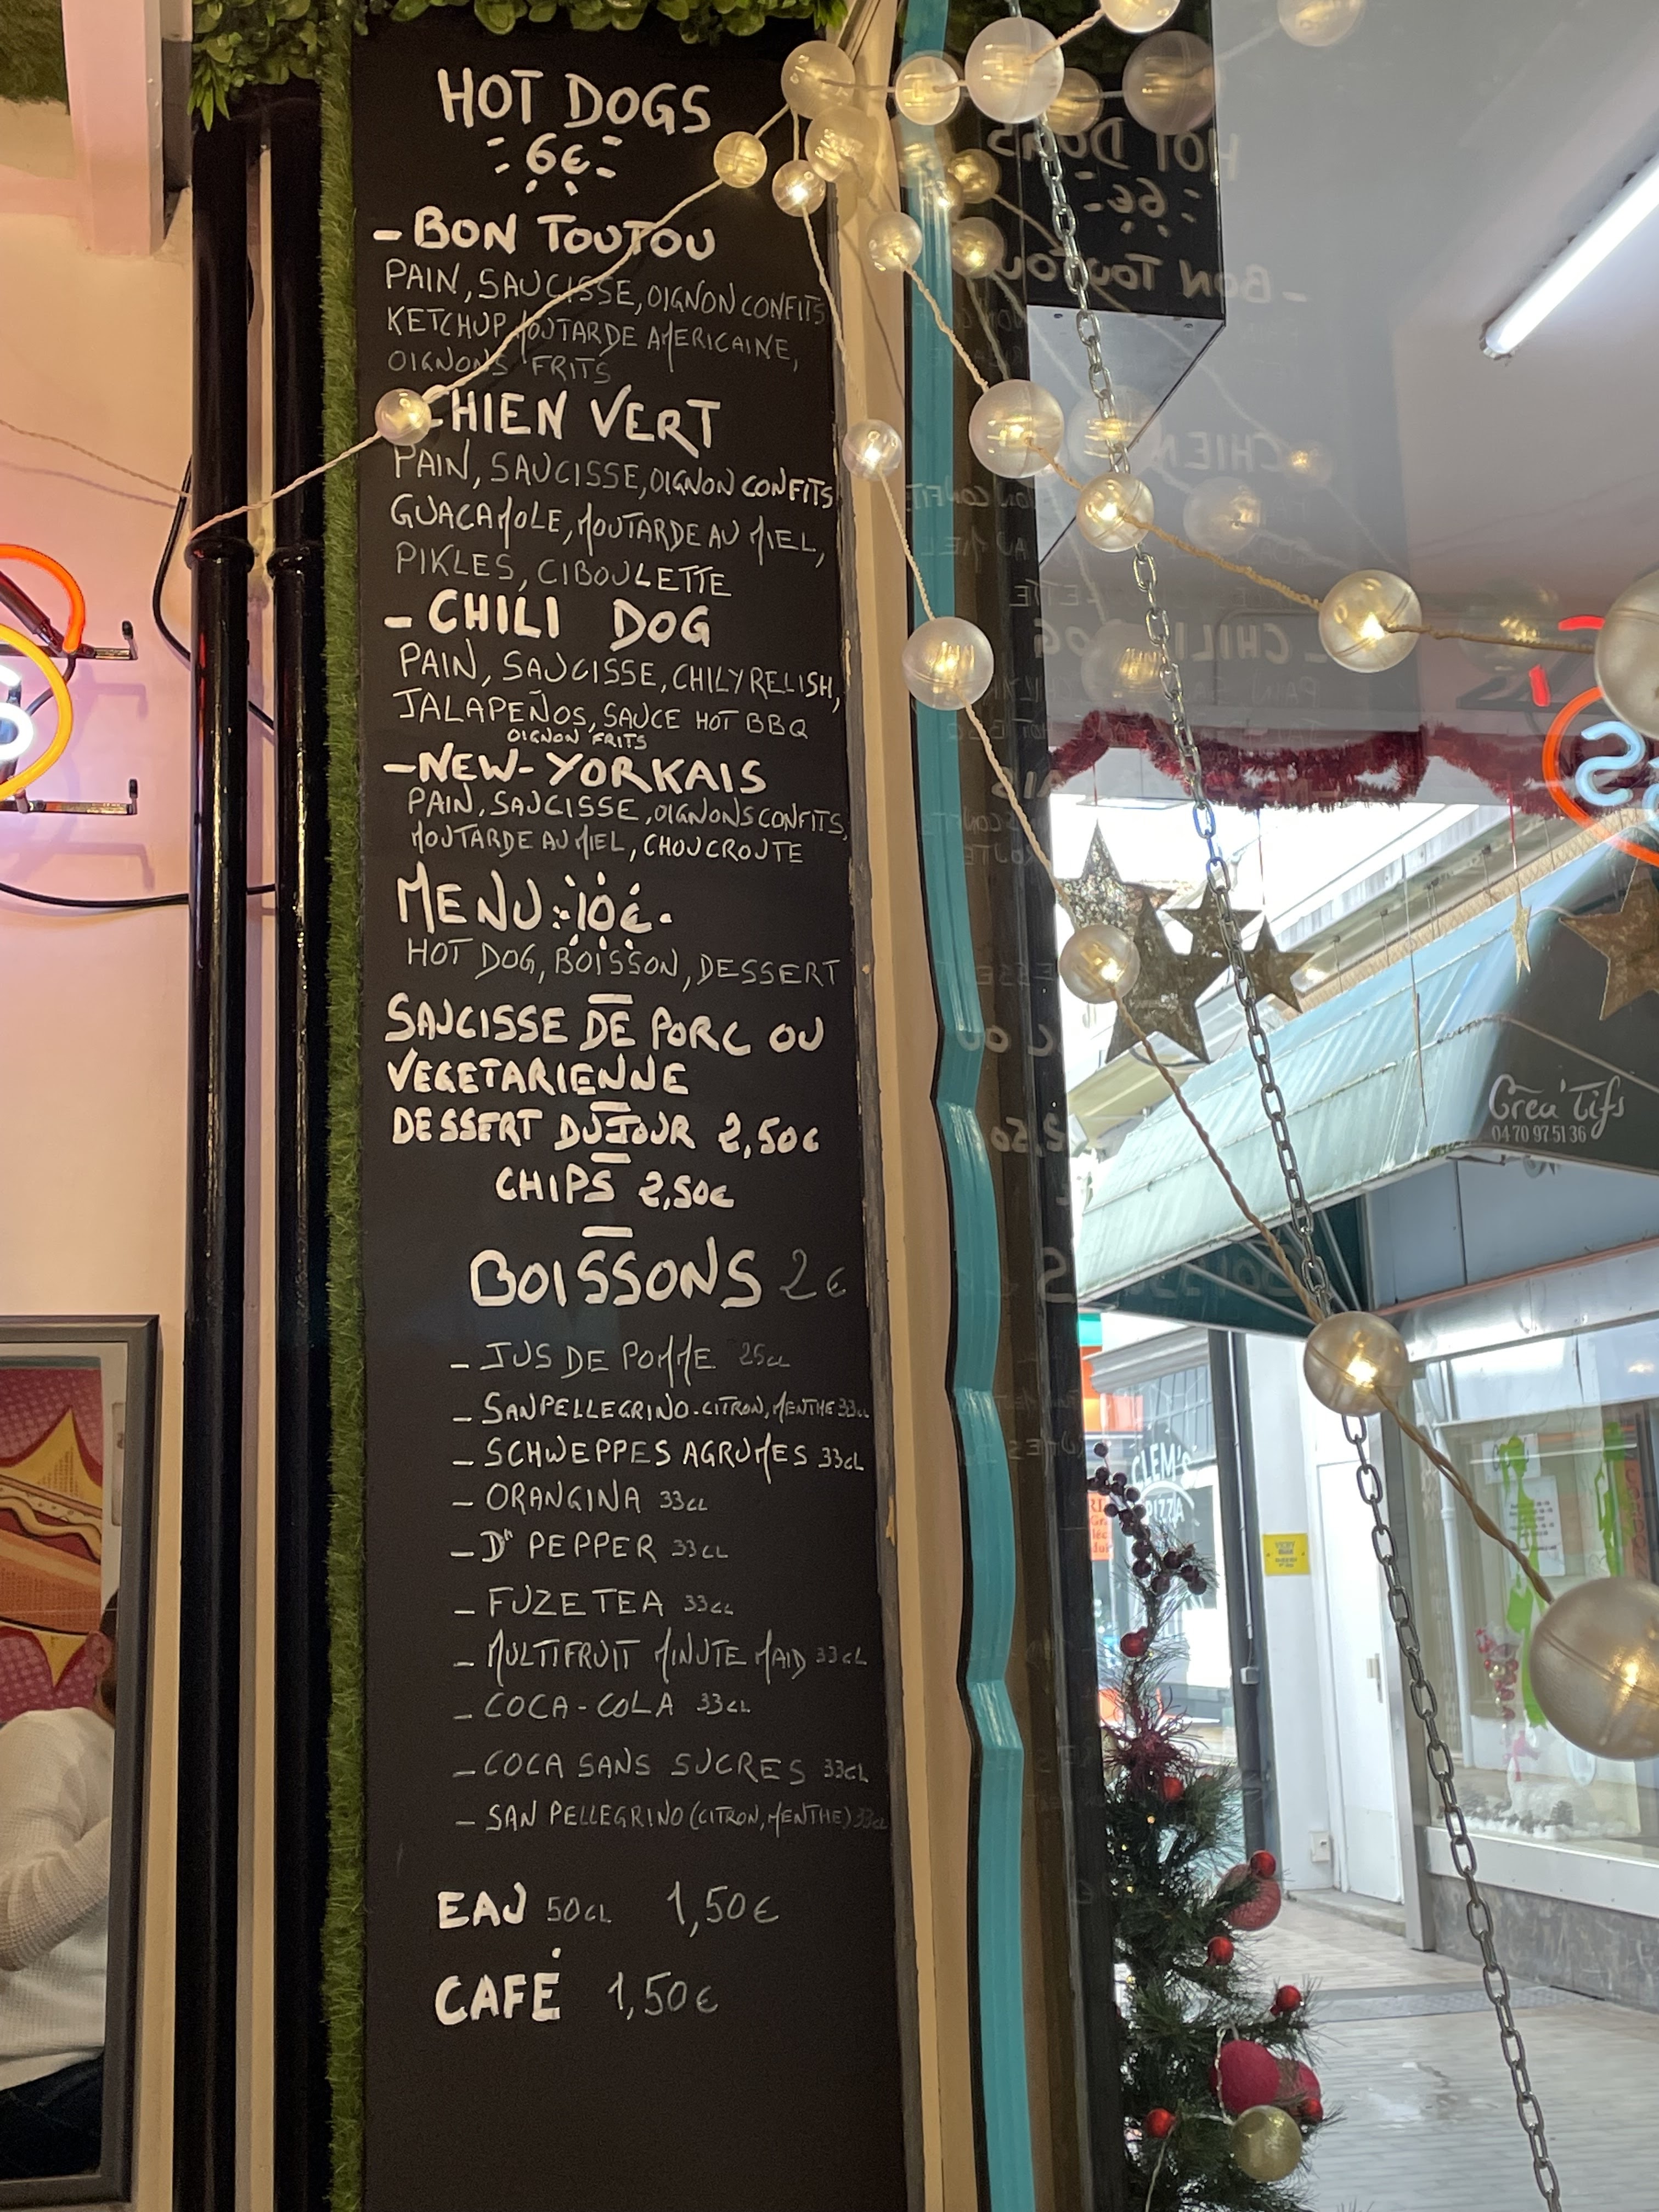 HOT DOGS
6€
- BON TOUTOU
PAIN, SAUCISSE, OIGNON CONFITS
KETCHUP, MOUTARDE AMERICAINE,
OIGNONS FRITS
CHIEN VERT
PAIN, SAUCISSE, OIGNON CONFITS
GUACAMOLE, MOUTARDE AU MIEL,
PIKLES, CIBOULETTE
- CHILI DOG
PAIN, SAUCISSE, CHILY RELISH,
JALAPEÑOS, SAUCE HOT BBQ
OIGNON FRITS
- NEW-YORKAIS
PAIN, SAUCISSE, OIGNONS CONFITS,
MOUTARDE AU MIEL, CHOUCROUTE
MENU 10€
HOT DOG, BOISSON, DESSERT
SAUCISSE DE PORC OU
VEGETARIENNE
DESSERT DU JOUR 2,50€
CHIPS 2,50€
BOISSONS 2€
- JUS DE POMME 25CL
- SANPELLEGRINO-CITRON, MENTHE 33CL
- SCHWEPPES AGRUMES 33CL
- ORANGINA 33CL
- DR PEPPER 33CL
- FUZE TEA 33CL
- MULTIFRUIT MINUTE MAID 33CL
- COCA-COLA 33CL
- COCA SANS SUCRES 33CL
- SAN PELLEGRINO (CITRON, MENTHE) 33CL
EAU 50CL 1,50€
CAFÉ 1,50€
Créa'Tifs
04 70 97 51 36
CLEM'S
PIZZA